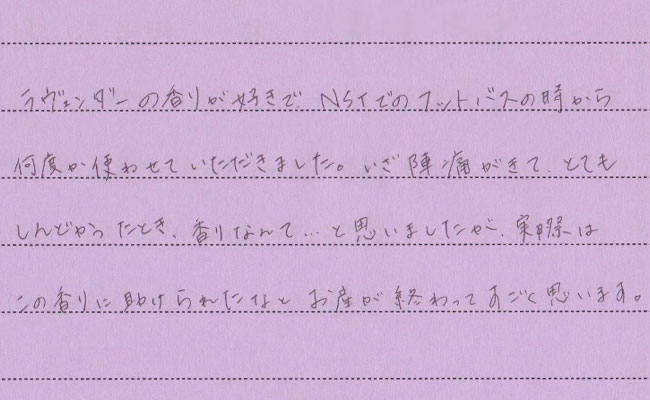 ラヴェンダーの香りが好きで、NSTでのフットバスの時から
何度か使わせていただきました。いざ陣痛がきて、とても
しんどかったとき、香りなんて…と思いましたが、実際は
この香りに助けられたなと お産が終わってすごく思います。